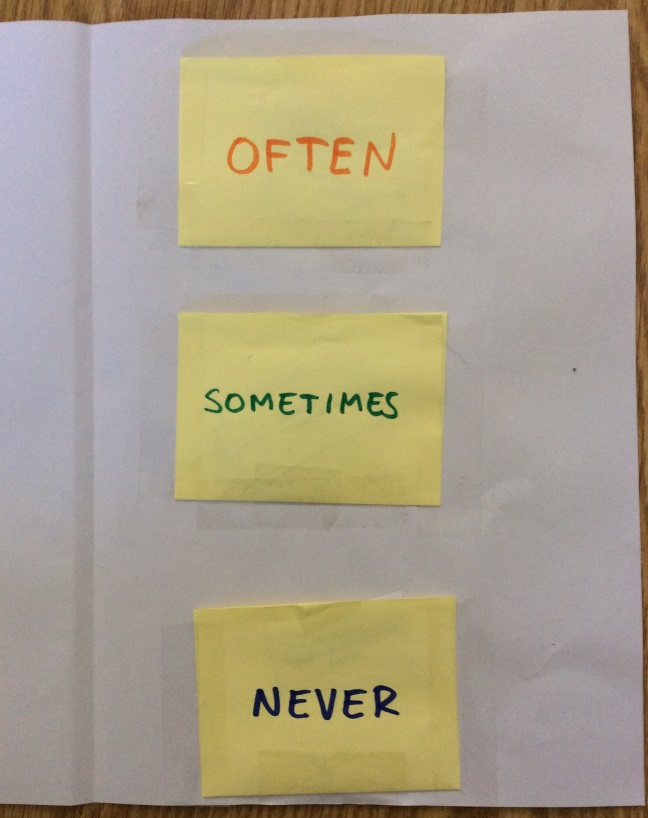 OFTEN
SOMETIMES
NEVER